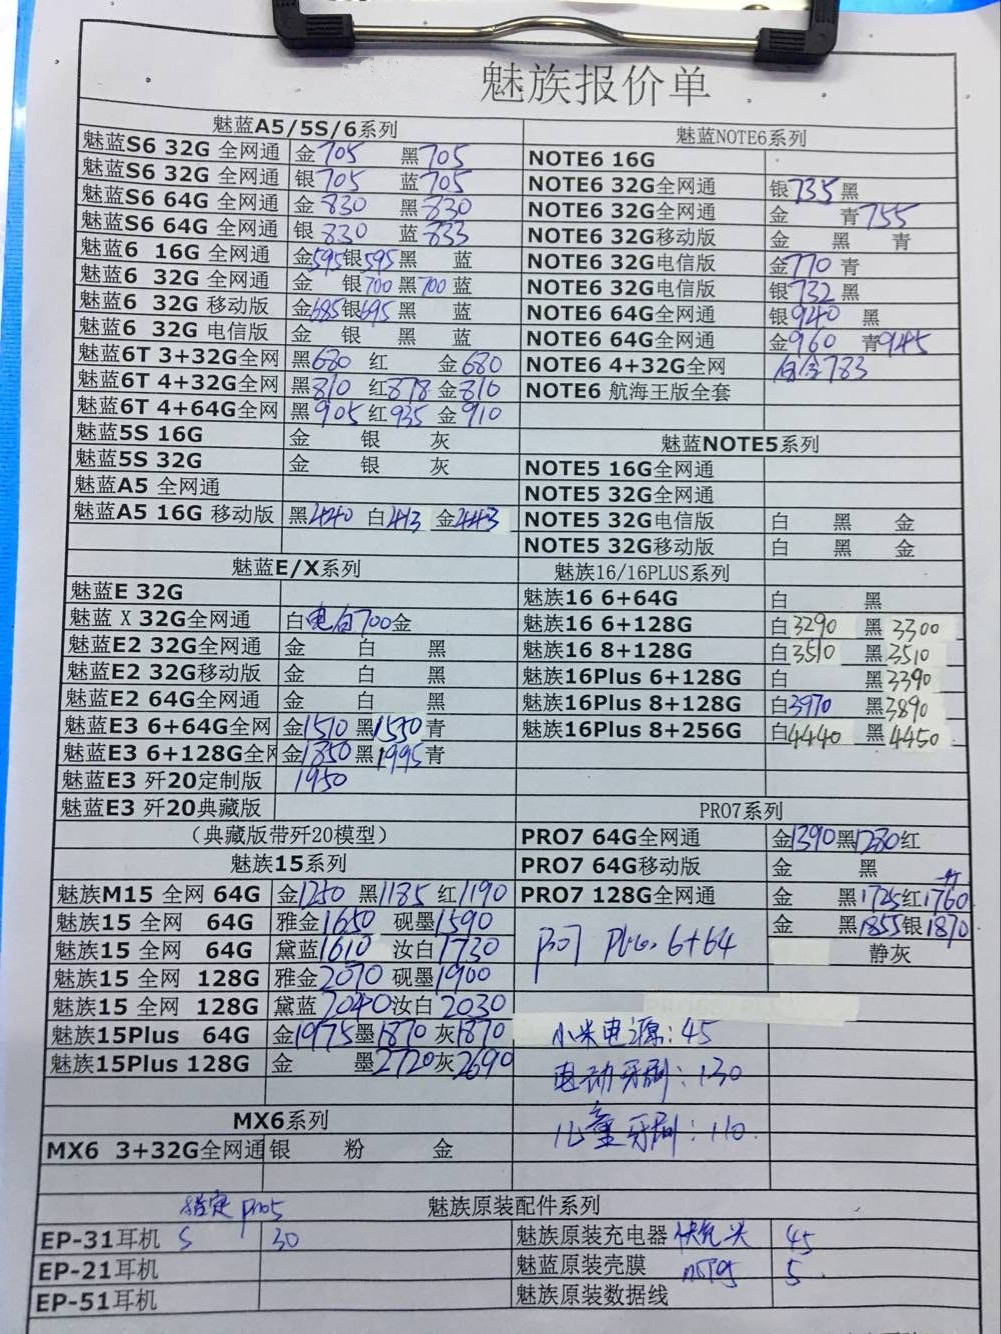 魅族报价单
魅蓝A5/5S/6系列
魅蓝S6 32G 全网通 金705 黑705
魅蓝S6 32G 全网通 银705 蓝705
魅蓝S6 64G 全网通 金830 黑830
魅蓝S6 64G 全网通 银830 蓝833
魅蓝6 16G 全网通 金595银595黑 蓝
魅蓝6 32G 全网通 金 银700黑700蓝
魅蓝6 32G 移动版 金685银695黑 蓝
魅蓝6 32G 电信版 金 银 黑 蓝
魅蓝6T 3+32G全网 黑680 红 金680
魅蓝6T 4+32G全网 黑810 红878 金810
魅蓝6T 4+64G全网 黑905红935 金910
魅蓝5S 16G 金 银 灰
魅蓝5S 32G 金 银 灰
魅蓝A5 全网通
魅蓝A5 16G 移动版 黑440 白443 金443
魅蓝E/X系列
魅蓝E 32G
魅蓝 X 32G全网通 白电白700金
魅蓝E2 32G全网通 金 白 黑
魅蓝E2 32G移动版 金 白 黑
魅蓝E2 64G全网通 金 白 黑
魅蓝E3 6+64G全网 金1510黑1530青
魅蓝E3 6+128G全网 金1850黑1995青
魅蓝E3 歼20定制版 1950
魅蓝E3 歼20典藏版
（典藏版带歼20模型）
魅族15系列
魅族M15 全网 64G 金1250 黑1185 红1190
魅族15 全网 64G 雅金1650 砚墨1590
魅族15 全网 64G 黛蓝1610 汝白1730
魅族15 全网 128G 雅金2070 砚墨1900
魅族15 全网 128G 黛蓝2040汝白2030
魅族15Plus 64G 金1975墨1870灰1870
魅族15Plus 128G 金 墨2720灰2690
MX6系列
MX6 3+32G全网通 银 粉 金
魅蓝NOTE6系列
NOTE6 16G
NOTE6 32G全网通 银735黑
NOTE6 32G全网通 金 青755
NOTE6 32G移动版 金 黑 青
NOTE6 32G电信版 金770青
NOTE6 32G电信版 银732黑
NOTE6 64G全网通 银940 黑
NOTE6 64G全网通 金960 青945
NOTE6 4+32G全网 783
NOTE6 航海王版全套
魅蓝NOTE5系列
NOTE5 16G全网通
NOTE5 32G全网通
NOTE5 32G电信版 白 黑 金
NOTE5 32G移动版 白 黑 金
魅族16/16PLUS系列
魅族16 6+64G 白 黑
魅族16 6+128G 白3290 黑3300
魅族16 8+128G 白3510 黑3510
魅族16Plus 6+128G 白 黑3390
魅族16Plus 8+128G 白3970 黑3890
魅族16Plus 8+256G 白4440 黑4450
PRO7系列
PRO7 64G全网通 金1390黑1230红
PRO7 64G移动版 金 黑
PRO7 128G全网通 金 黑1725红1760
pro7 plus. 6+64 金 黑1855银1870
静灰
小米电源:45
电动牙刷:130
儿童牙刷:110.
魅族原装配件系列
指定 pro5
EP-31耳机 S 30
EP-21耳机
EP-51耳机
魅族原装充电器 快充头 45
魅蓝原装壳膜 5.
魅族原装数据线